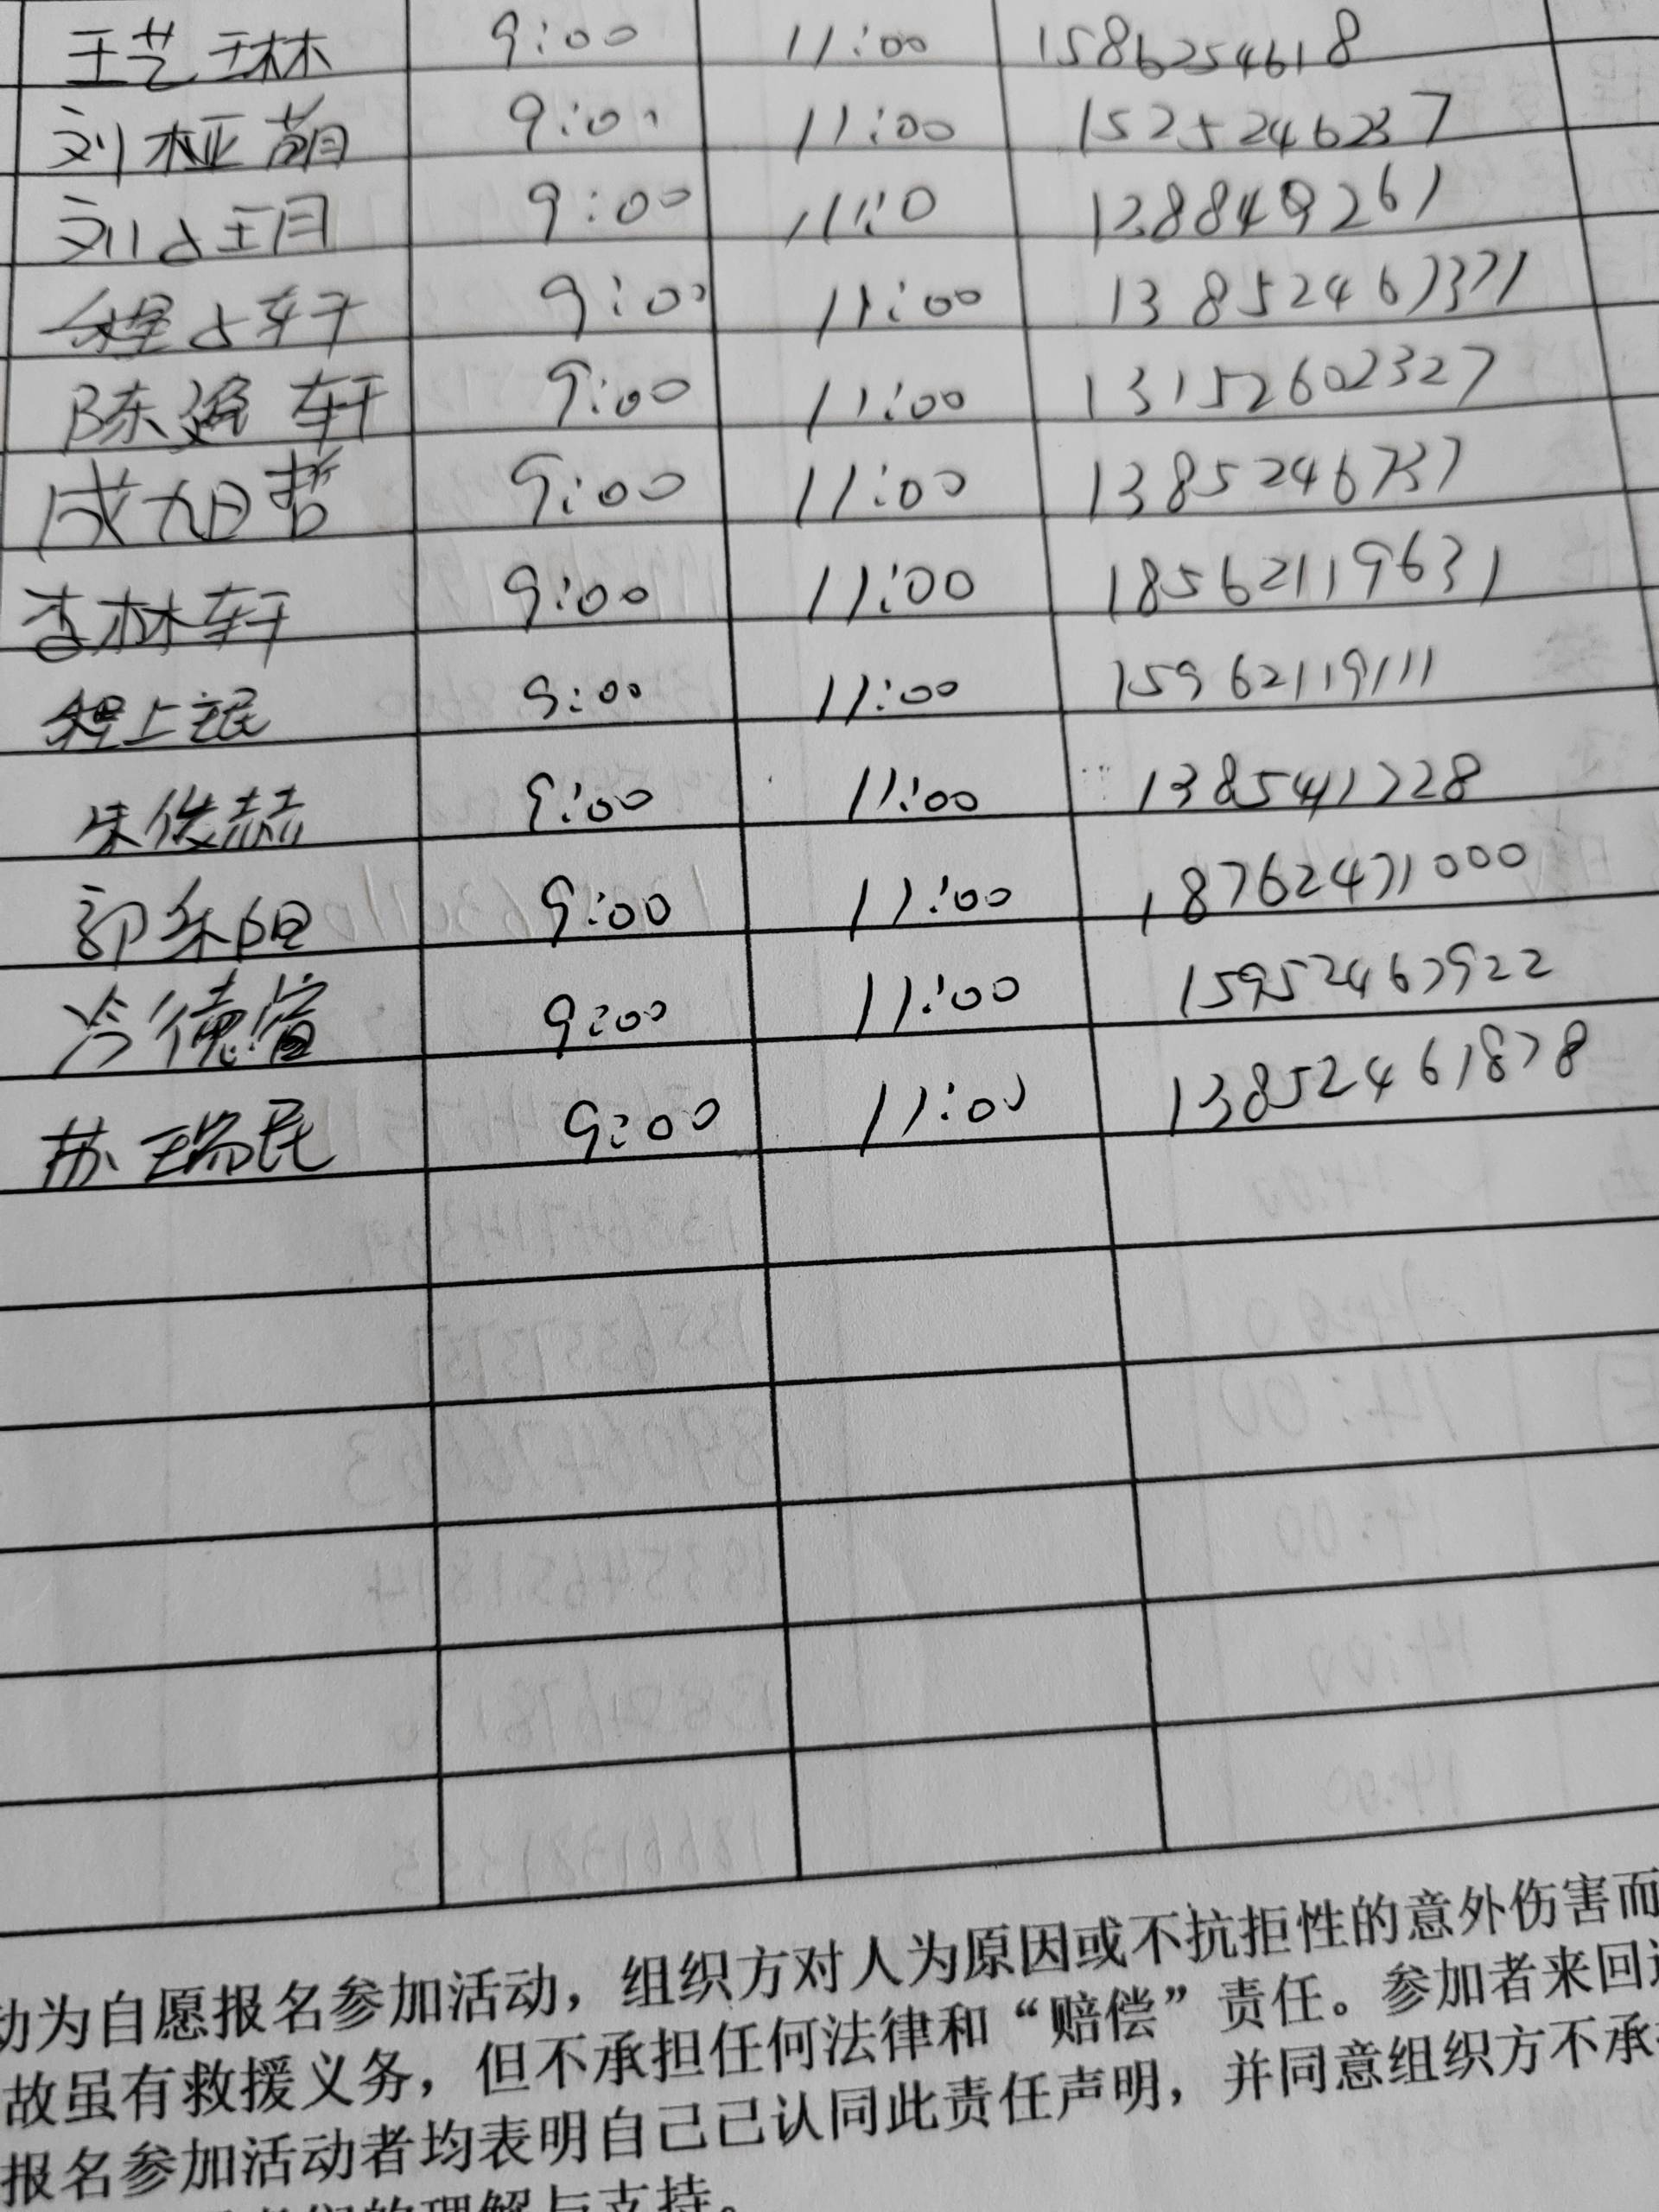 王艺琳 9:00 11:00 1586254618
刘桠萌 9:00 11:00 15252462337
刘占玥 9:00 11:0 1288849261
程占轩 9:00 11:00 13852467371
陈逸轩 9:00 11:00 13152602327
成旭哲 9:00 11:00 1385246737
李林轩 9:00 11:00 18562119631
程上珉 9:00 11:00 15962119111
朱俊赫 9:00 11:00 1385417728
郭 9:00 11:00 18762471000
冷德 9:00 11:00 15952467922
苏瑞民 9:00 11:00 13852461878
动为自愿报名参加活动，组织方对人为原因或不抗拒性的意外伤害而
故虽有救援义务，但不承担任何法律和“赔偿”责任。参加者来回
报名参加活动者均表明自己已认同此责任声明，并同意组织方不承
的理解与支持。